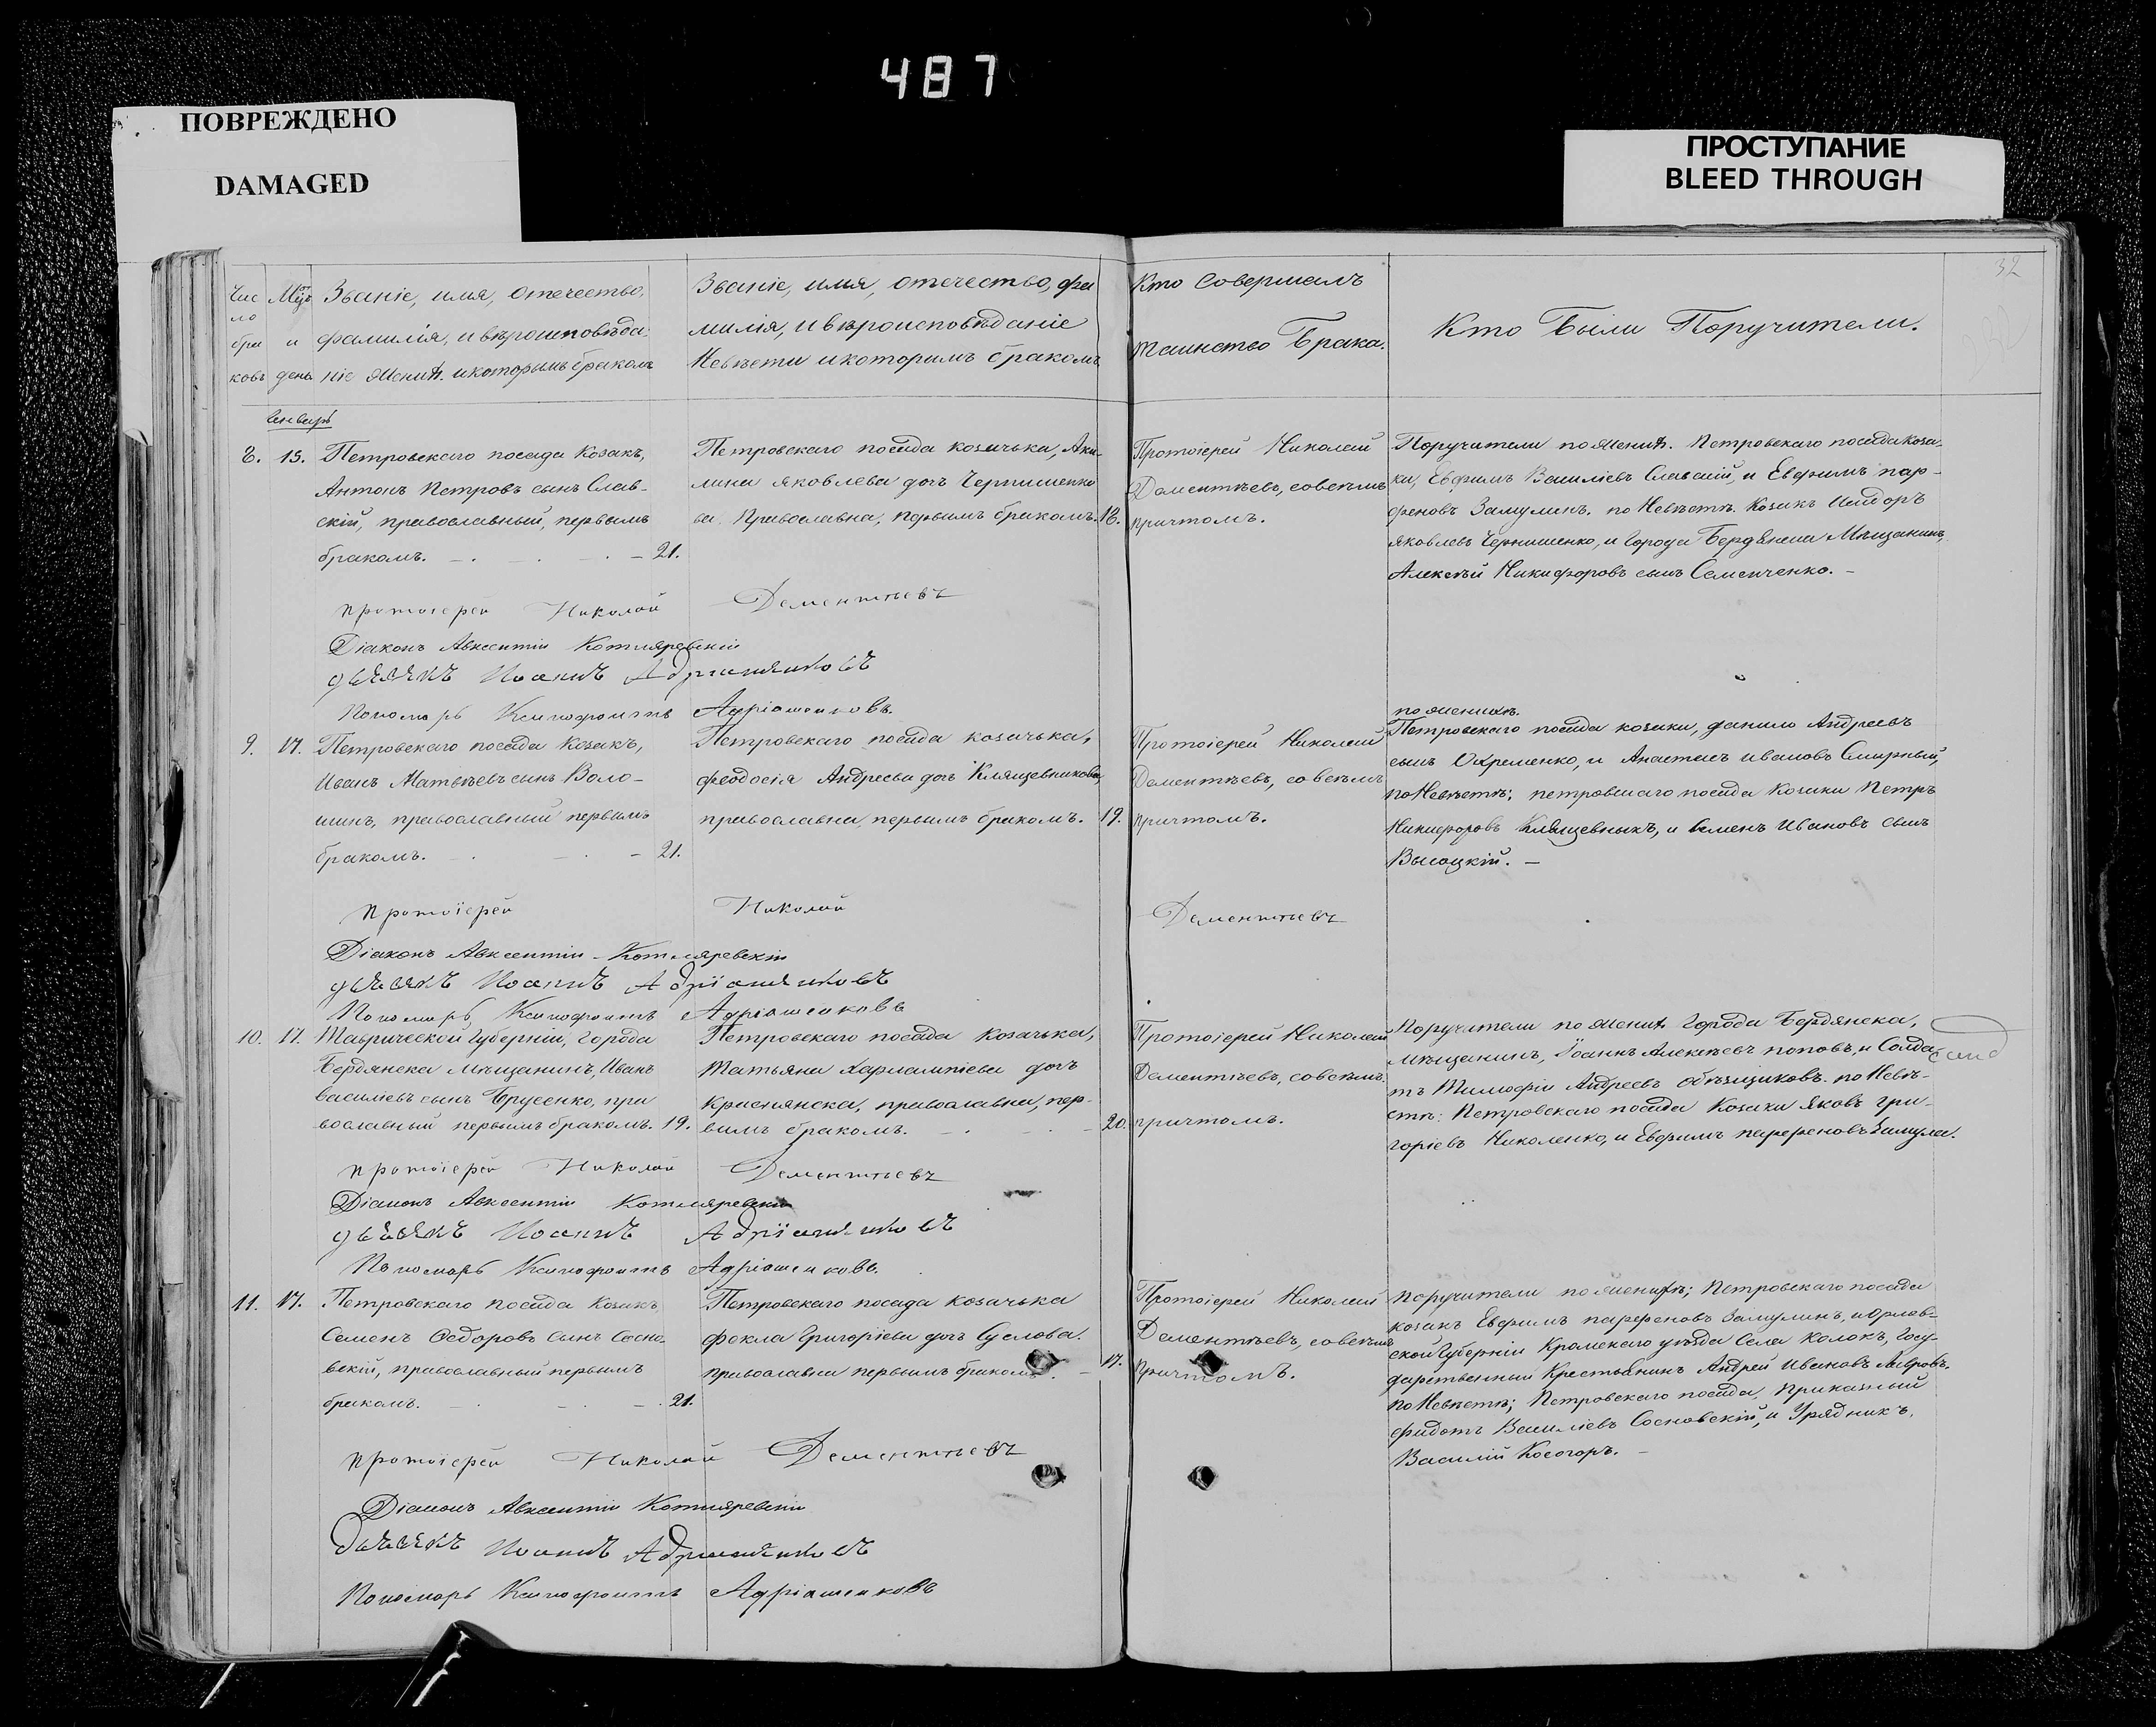 487
ПОВРЕЖДЕНО
DAMAGED
ПРОСТУПАНИЕ
BLEED THROUGH
32
Чис
ло
бра
ковъ
Мцъ
и
день
Званіе, имя, отечество,
фамилія, и вѣроисповѣда
ніе жених. и которымъ бракомъ
Званіе, имя, отечество, фа
милія, и вѣроисповѣданіе
Невѣсти и которимъ бракомъ
Кто совершалъ
таинство Брака.
Кто Были Поручители.
Январь
8. 15. Петровскаго посада козакъ,
Антонъ Петровъ сынъ Слав-
скій, православный, первымъ
бракомъ. 21.
Петровскаго посада козачька, Аку-
лина Яковлева дочь Чернишенко
ва. Православна, первымъ бракомъ. 18.
Протоіерей Николай
Дементьевъ, совсѣмъ
причтомъ.
Поручители по жених. Петровскаго посада коза-
ки, Евфимъ Василіевъ Славскій, и Евфимъ пар-
феновъ Замулинъ. по Невѣстѣ. Козакъ Исидоръ
Яковлевъ Чернишенко, и города Бердянска Мѣщанинъ,
Алексѣй Никифоровъ сынъ Семенченко. –
Протоіерей Николай Дементьевъ
Діаконъ Авксентій Котляревскій
дьячекъ Иоаннъ Адріашенковъ
Пономарь Ксенофонтъ Адріашенковъ.
9. 17. Петровскаго посада Козакъ,
Иванъ Матвѣевъ сынъ Воло-
шинъ, православный первымъ
бракомъ. 21.
Петровскаго посада козачька,
феодосія Андреева дочь Клящевникова,
православна, первымъ бракомъ. 19.
Протоіерей Николай
Дементьевъ, совсѣмъ
причтомъ.
по жених.
Петровскаго посада козаки, данило Андреевъ
сынъ Охременко, и Анастасъ ивановъ Смирный,
по Невѣстѣ; петровскаго посада Козаки Петръ
Никифоровъ Клящевныкъ, и Семенъ Ивановъ сынъ
Высоцкій. –
Протоіерей Николай Дементьевъ
Діаконъ Авксентій Котляревскій
дьячекъ Иоаннъ Адріашенковъ
Пономарь Ксенофонтъ Адріашенковъ
10. 17. Таврической губерніи, города
Бердянска Мѣщанинъ, Иванъ
василіевъ сынъ Брусенко, пра
вославный первымъ бракомъ. 19.
Петровскаго посада Козачька,
Татьяна Харлампіева дочь
Краснянска, православна, пер-
вимъ бракомъ. 20.
Протоіерей Николай
Дементьевъ, совсѣмъ
причтомъ.
Поручители по жених города Бердянска,
мѣщанинъ, Іоаннъ Алексѣевъ поповъ, и Солда
тъ Тимофій Андреевъ объѣщиковъ. по Невѣ-
стѣ: Петровскаго посада Козаки Яковъ гри-
горіевъ Николенко, и Евфимъ парфеновъ Замула.
Протоіерей Николай Дементьевъ
Діаконъ Авксентій Котляревскій
дьячекъ Иоаннъ Адріашенковъ
Пономарь Ксенофонтъ Адріашенковъ.
11. 17. Петровскаго посада Козакъ
Семенъ Федоровъ сынъ Сосно-
вскій, православный первымъ
бракомъ. 21.
Петровскаго посада козачька
фекла Григоріева дочь Суслова.
православна первымъ бракомъ. 17.
Протоіерей Николай
Дементьевъ, совсѣмъ
причтомъ.
Поручители по женихѣ; Петровскаго посада
козакъ Евфимъ парфеновъ Замулинъ, и Орлов-
ской Губерніи Кромскаго уѣзда Села Колокъ, Госу-
дарственный Крестьянинъ Андрей Ивановъ Лавровъ.
по Невѣстѣ; Петровскаго посада приказный
фидотъ Василіевъ Сосновскій, и Урядникъ,
Василій Косогоръ. –
Протоіерей Николай Дементьевъ
Діаконъ Авксентій Котляревскій
дьячекъ Иоаннъ Адріашенковъ
Пономарь Ксенофонтъ Адріашенковъ